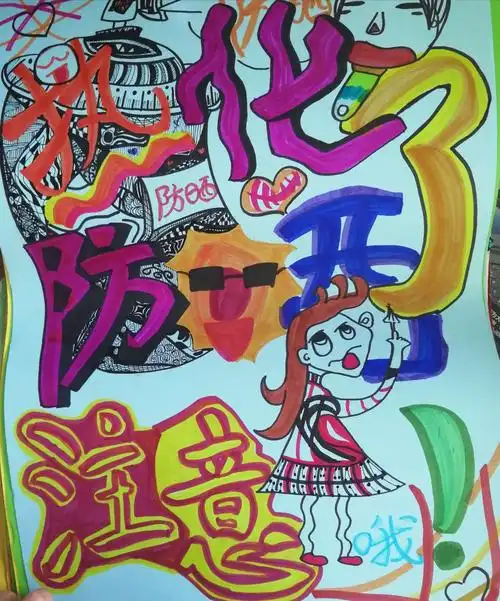 热化了
防晒
防晒
注意哦!